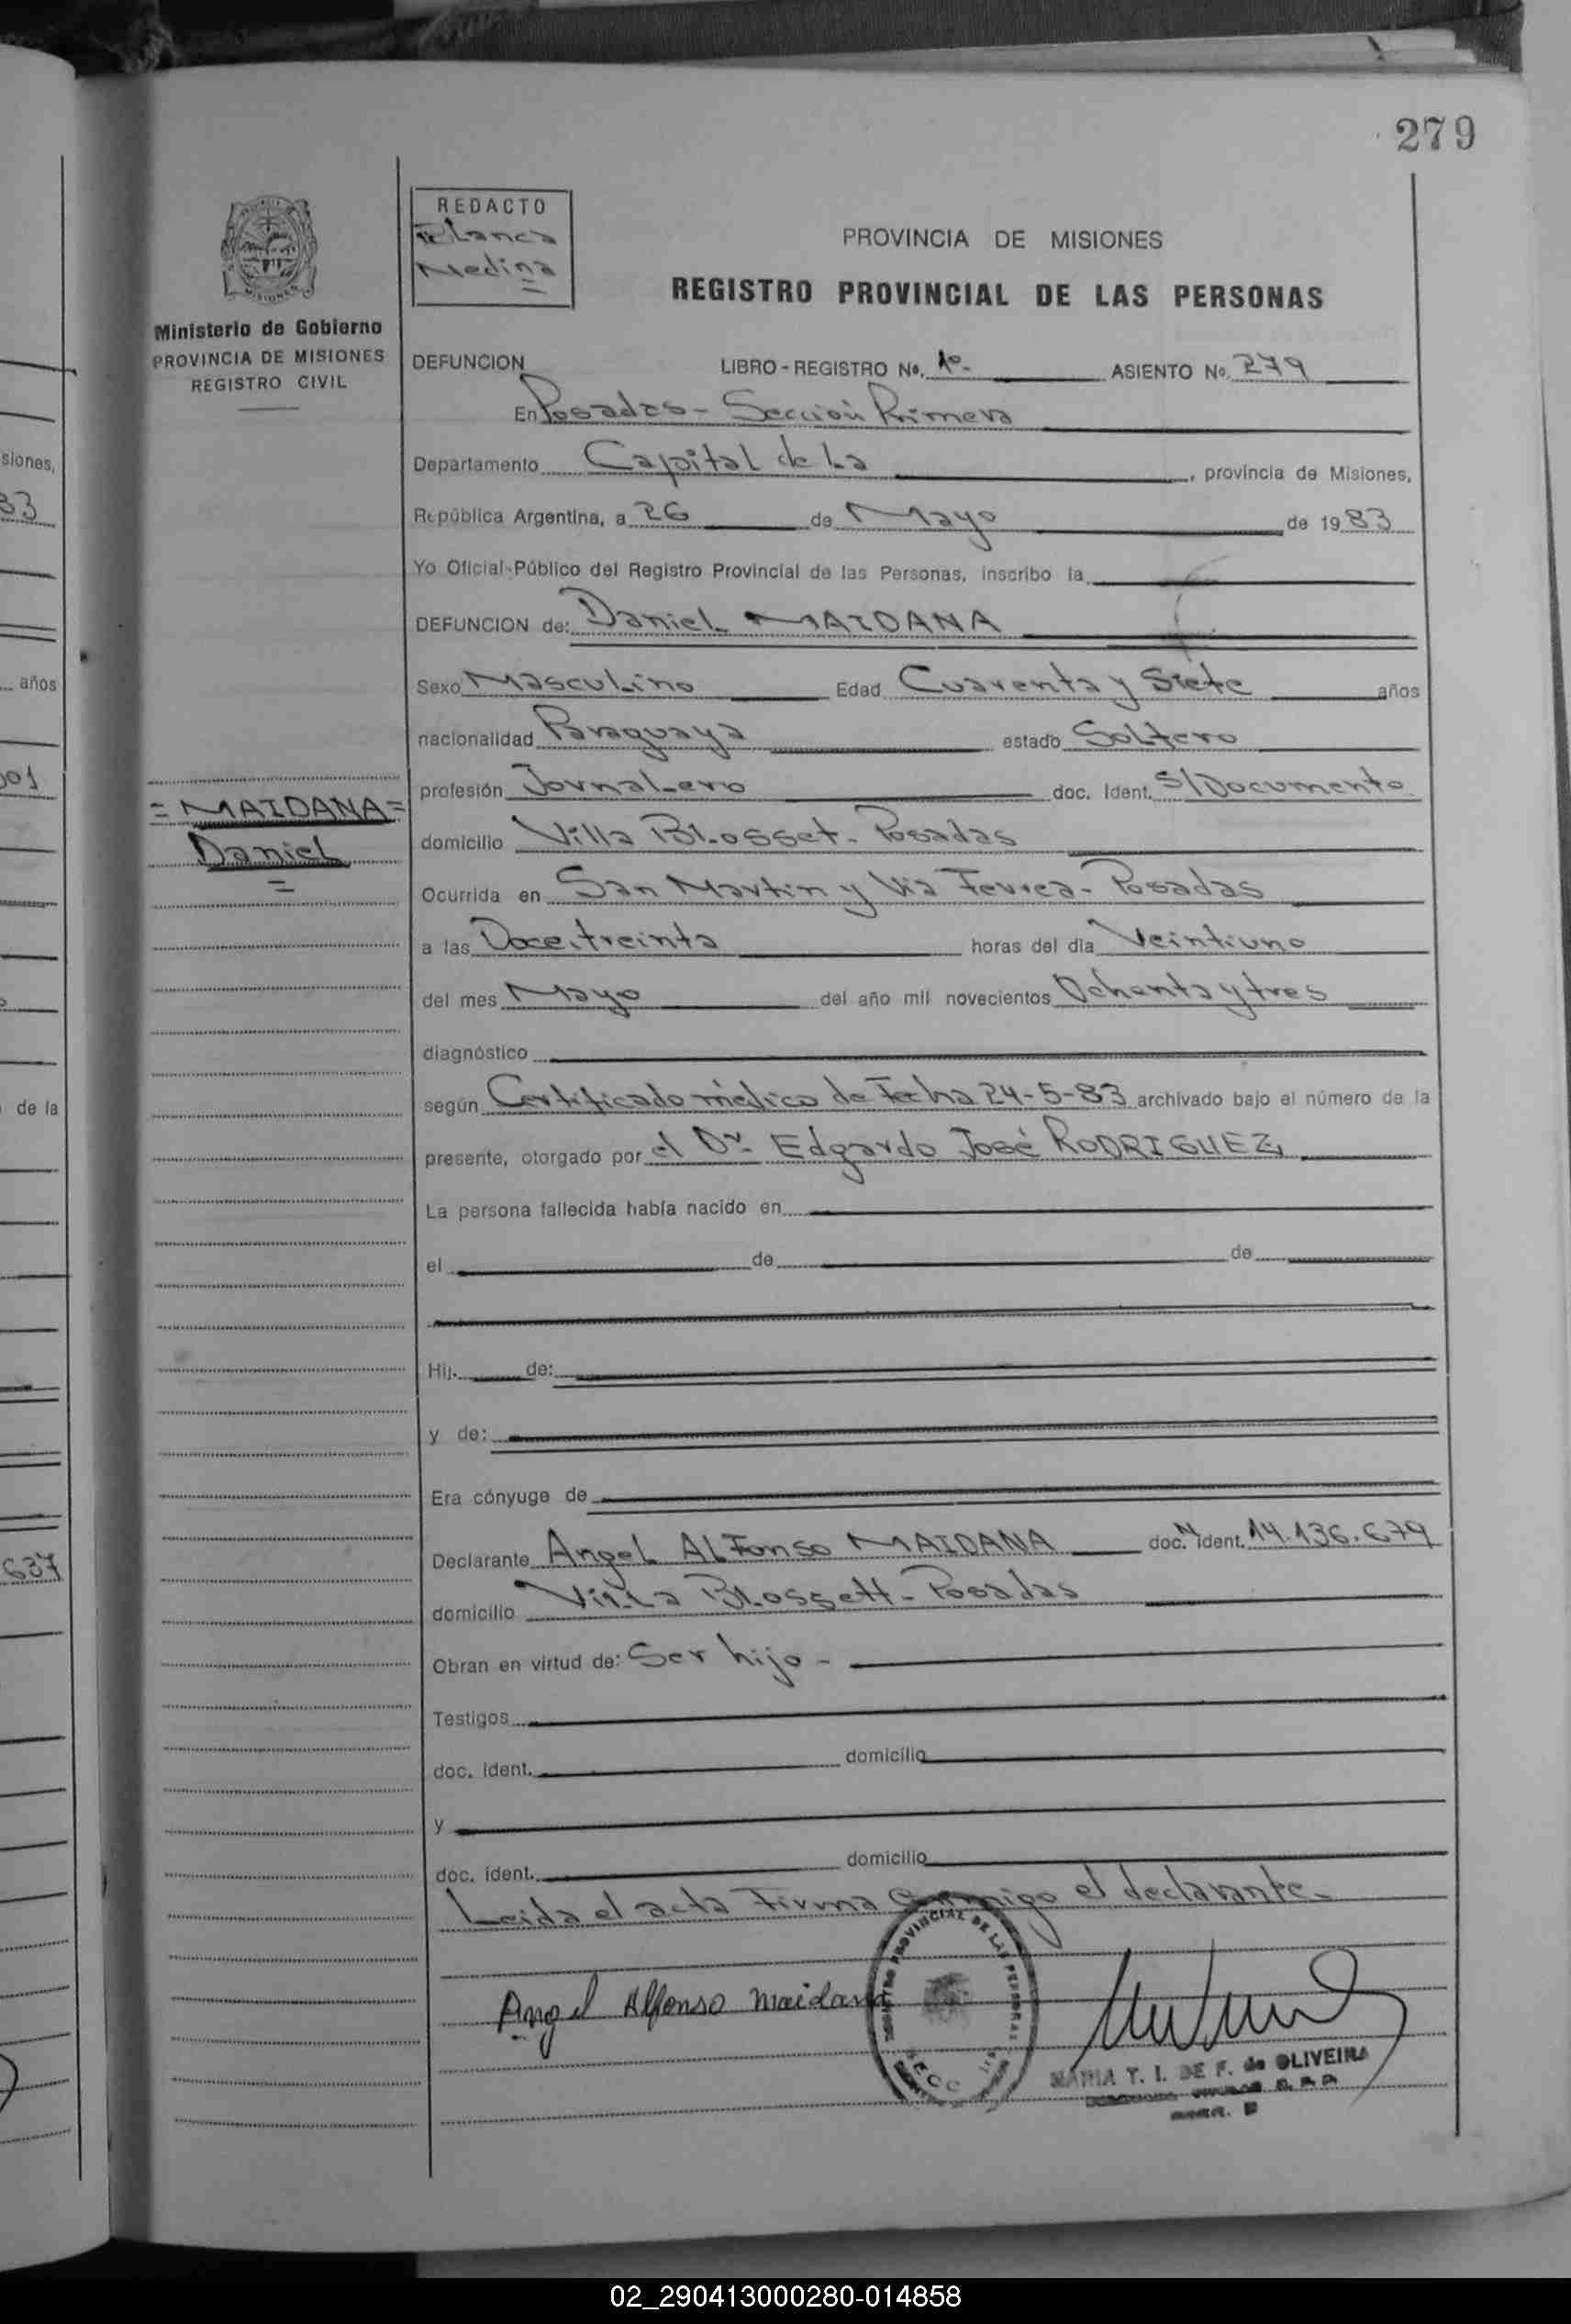 279
REDACTO
Blanca
Medina
PROVINCIA DE MISIONES
REGISTRO PROVINCIAL DE LAS PERSONAS
Ministerio de Gobierno
PROVINCIA DE MISIONES
REGISTRO CIVIL
DEFUNCION LIBRO - REGISTRO No. 1º- ASIENTO No. 279
En Posadas - Sección Primera
Departamento Capital de La , provincia de Misiones,
República Argentina, a 26 de Mayo de 19 83
Yo Oficial Público del Registro Provincial de las Personas, inscribo la
DEFUNCION de: Daniel MAIDANA
Sexo Masculino Edad Cuarenta y Siete años
nacionalidad Paraguaya estado Soltero
profesión Jornalero doc. Ident. S/Documento
= MAIDANA =
Daniel
domicilio Villa Blosset - Posadas
Ocurrida en San Martin y Via Ferrea - Posadas
a las Doce, treinta horas del día Veintiuno
del mes Mayo del año mil novecientos Ochenta y tres
diagnóstico
según Certificado médico de Fecha 24-5-83 archivado bajo el número de la
presente, otorgado por el Dr. Edgardo José RODRIGUEZ,
La persona fallecida había nacido en
el de de
Hij. de:
y de:
Era cónyuge de
Declarante Angel ALFonso MAIDANA doc. N ident. 14.136.679
domicilio Villa Blossett - Posadas
Obran en virtud de: Ser hijo -
Testigos
doc. ident. domicilio
y
doc. ident. domicilio
Leida el acta Firma Conmigo el declarante -
REGISTRO PROVINCIAL DE LAS PERSONAS
Angel Alfonso Maidana
MARIA T. I. DE F. de OLIVEIRA
siones,
83
años
001
de la
637
02_290413000280-014858